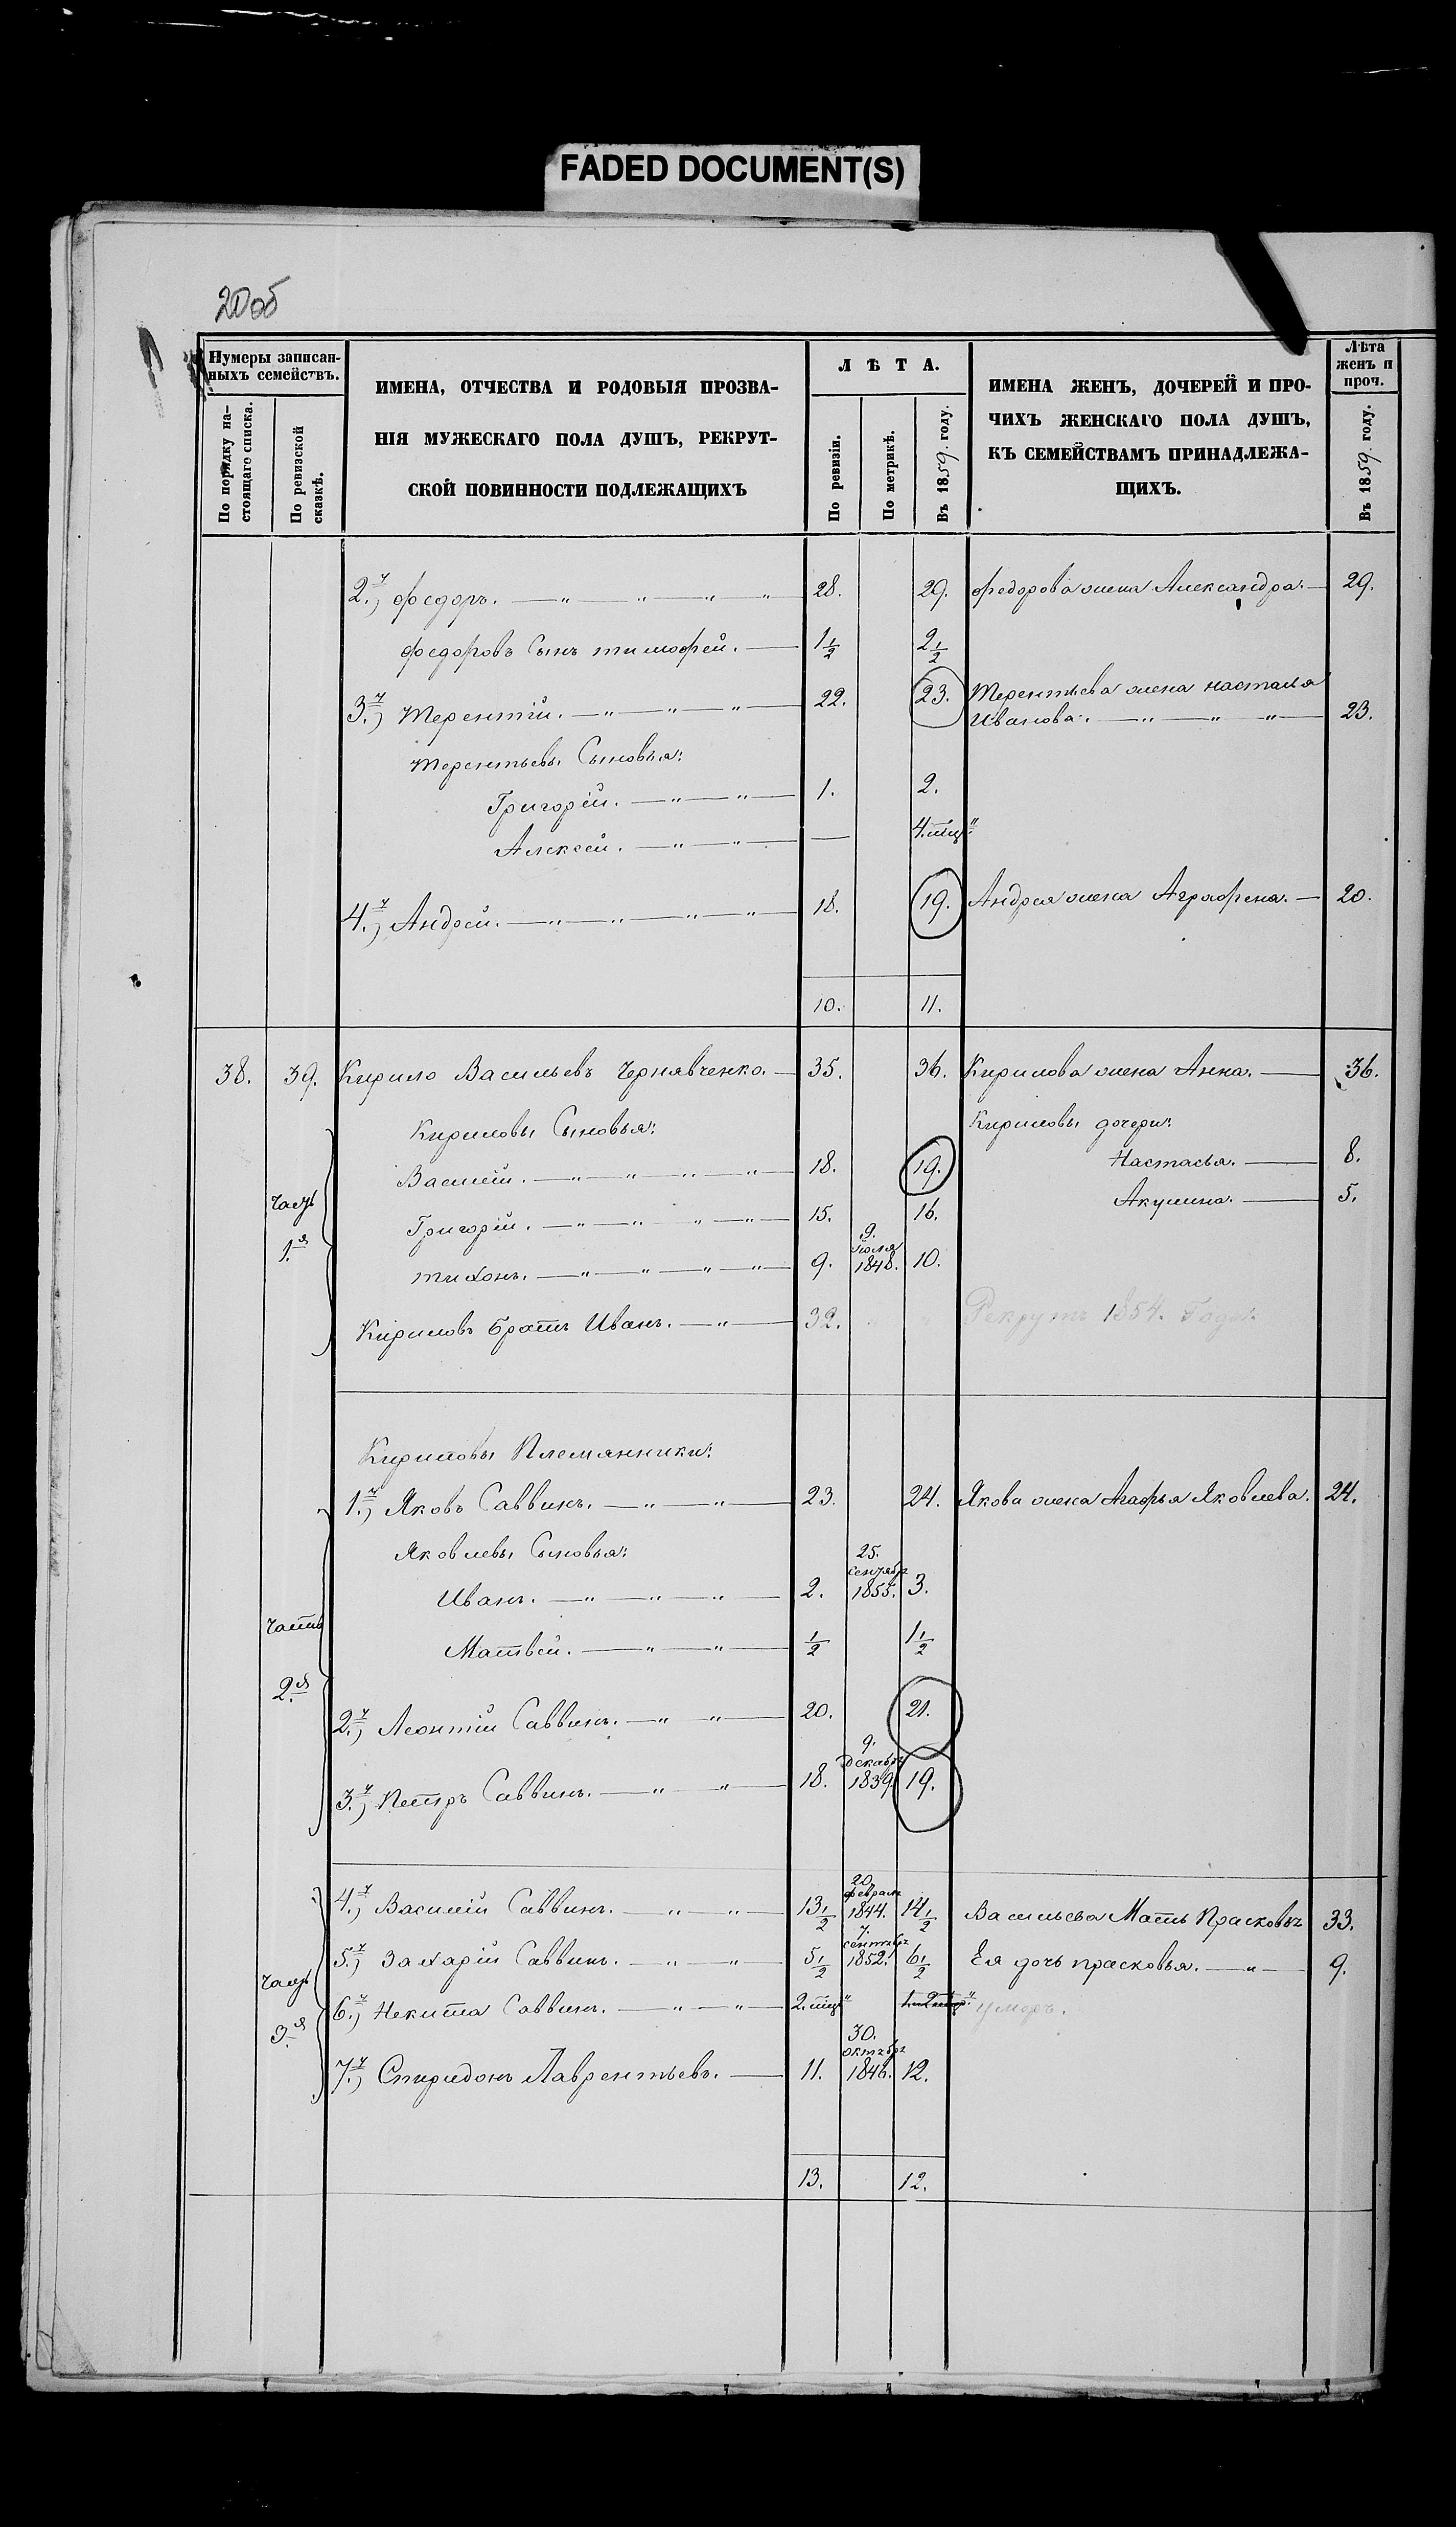 FADED DOCUMENT(S)
20об
Нумеры записан-
ныхъ семействъ.
По порядку на-
стоящаго списка.
По ревизской
сказкѣ.
ИМЕНА, ОТЧЕСТВА И РОДОВЫЯ ПРОЗВА-
НІЯ МУЖЕСКАГО ПОЛА ДУШЪ, РЕКРУТ-
СКОЙ ПОВИННОСТИ ПОДЛЕЖАЩИХЪ
ЛѢТА.
По ревизіи.
По метрикѣ.
Въ 1859 году.
ИМЕНА ЖЕНЪ, ДОЧЕРЕЙ И ПРО-
ЧИХЪ ЖЕНСКАГО ПОЛА ДУШЪ,
КЪ СЕМЕЙСТВАМЪ ПРИНАДЛЕЖА-
ЩИХЪ.
Лѣта
женъ и
проч.
Въ 1859 году.
2.й) Федоръ. 28. 29. Федорова жена Александра. 29.
Федоровъ Сынъ тимофей. 1 1/2 2 1/2
3.й) Терентій. 22. 23. Терентьева жена настасья
Иванова. 23.
Терентьевы Сыновья:
Григорій. 1. 2.
Алексей. — 4. мц.
4.й) Андрей. 18. 19. Андрея жена Аграфена. 20.
10. 11.
38. 39. Кирило Васильевъ Чернявченко. 35. 36. Кирилова жена Анна. 36.
Кириловы Сыновья: Кириловы дочери:
Василій. 18. 19. Настасья. 8.
Часть
1.я
Григорій. 15. 16. Акулина. 5.
тихонъ. 9. 9. Іюля 1848. 10.
Кириловъ братъ Иванъ. 32. Рекрутъ 1854. Года.
Кириловы Племянники:
1.й) Яковъ Саввинъ. 23. 24. Якова жена Агафья Яковлева. 24.
Яковлевы Сыновья:
Иванъ. 2. 25. Сентября 1855. 3.
Часть
2.я
Матвей. 1/2 1 1/2
2.й) Леонтій Саввинъ. 20. 21.
3.й) Петръ Саввинъ. 18. 9. Декабря 1839. 19.
4.й) Василій Саввинъ. 13 1/2 20. Февраля 1844. 14 1/2 Васильева Мать Прасковья 33.
5.й) Захарій Саввинъ. 5 1/2 7. сентября 1852. 6 1/2 Ея дочь прасковья. 9.
Часть
3.я
6.й) Некита Саввинъ. 2. мц. умеръ.
7.й) Спиридонъ Лаврентьевъ. 11. 30. октября 1846. 12.
13. 12.